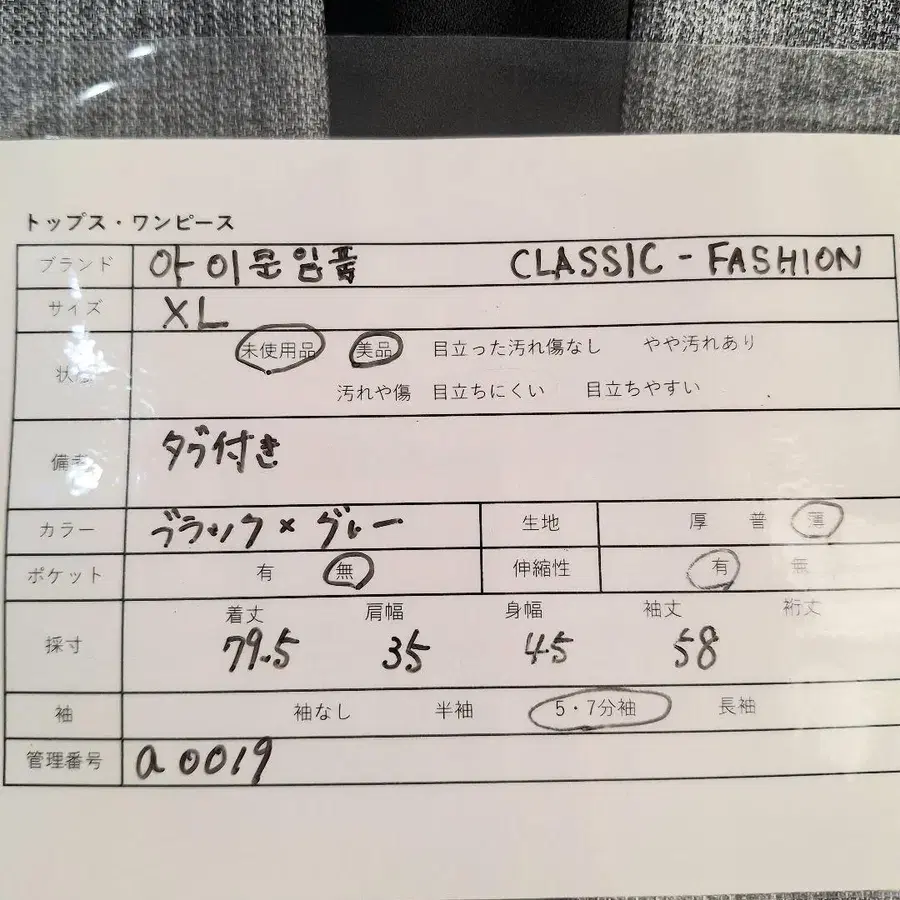 トップス・ワンピース
ブランド 아이문임품 CLASSIC - FASHION
サイズ XL
状態 未使用品 美品 目立った汚れ傷なし やや汚れあり
汚れや傷 目立ちにくい 目立ちやすい
備考 タグ付き
カラー ブラック × グレー 生地 厚 普 薄
ポケット 有 無 伸縮性 有 無
着丈 肩幅 身幅 袖丈 裄丈
採寸 79.5 35 45 58
袖 袖なし 半袖 5・7分袖 長袖
管理番号 a0019